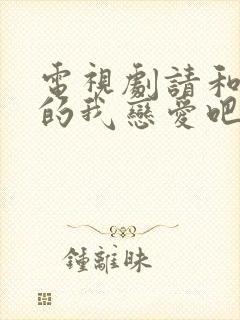 電視劇請和
的我戀愛吧
鍾離昧